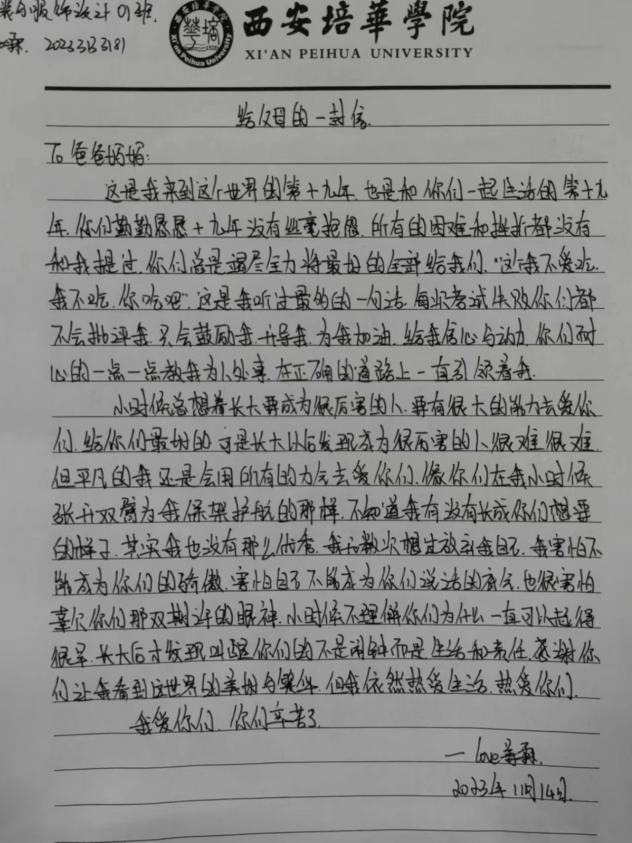 服饰设计01班.
西安培華學院
XI'AN PEIHUA UNIVERSITY
给父母的一封信.
To 爸爸妈妈:
这是我来到这个世界的第十九年.也是和你们一起生活的第十九
年.你们勤勤恳恳十九年没有丝毫抱怨.所有的困难和挫折都没有
和我提过.你们总是竭尽全力将最好的全部给我们."这个我不爱吃.
我不吃.你吃吧".这是我听过最多的一句话.每次考试失败你们都
不会批评我.只会鼓励我.开导我.为我加油.给我信心与动力.你们耐
心的一点一点教我为人处事.在正确的道路上一直引领着我.
小时候总想着长大要成为很厉害的人.要有很大的能力去爱你
们.给你们最好的.可是长大以后发现成为很厉害的人很难很难.
但平凡的我还是会用所有的力气去爱你们.像你们在我小时候
张开双臂为我保驾护航的那样.不知道我有没有长成你们想要
的样子.其实我也没有那么优秀.我无数次想过放弃我自己.我害怕不
能成为你们的骄傲.害怕自己不能成为你们说话的底气.也很害怕
辜负你们那双期许的眼神.小时候不理解你们为什么一直可以起得
很早.长大后才发现叫醒你们的不是闹钟而是生活和责任.感谢你
们让我看到这世界的美好与繁华.但我依然热爱生活.热爱你们.
我爱你们.你们辛苦了.
— love
2023年11月14日.